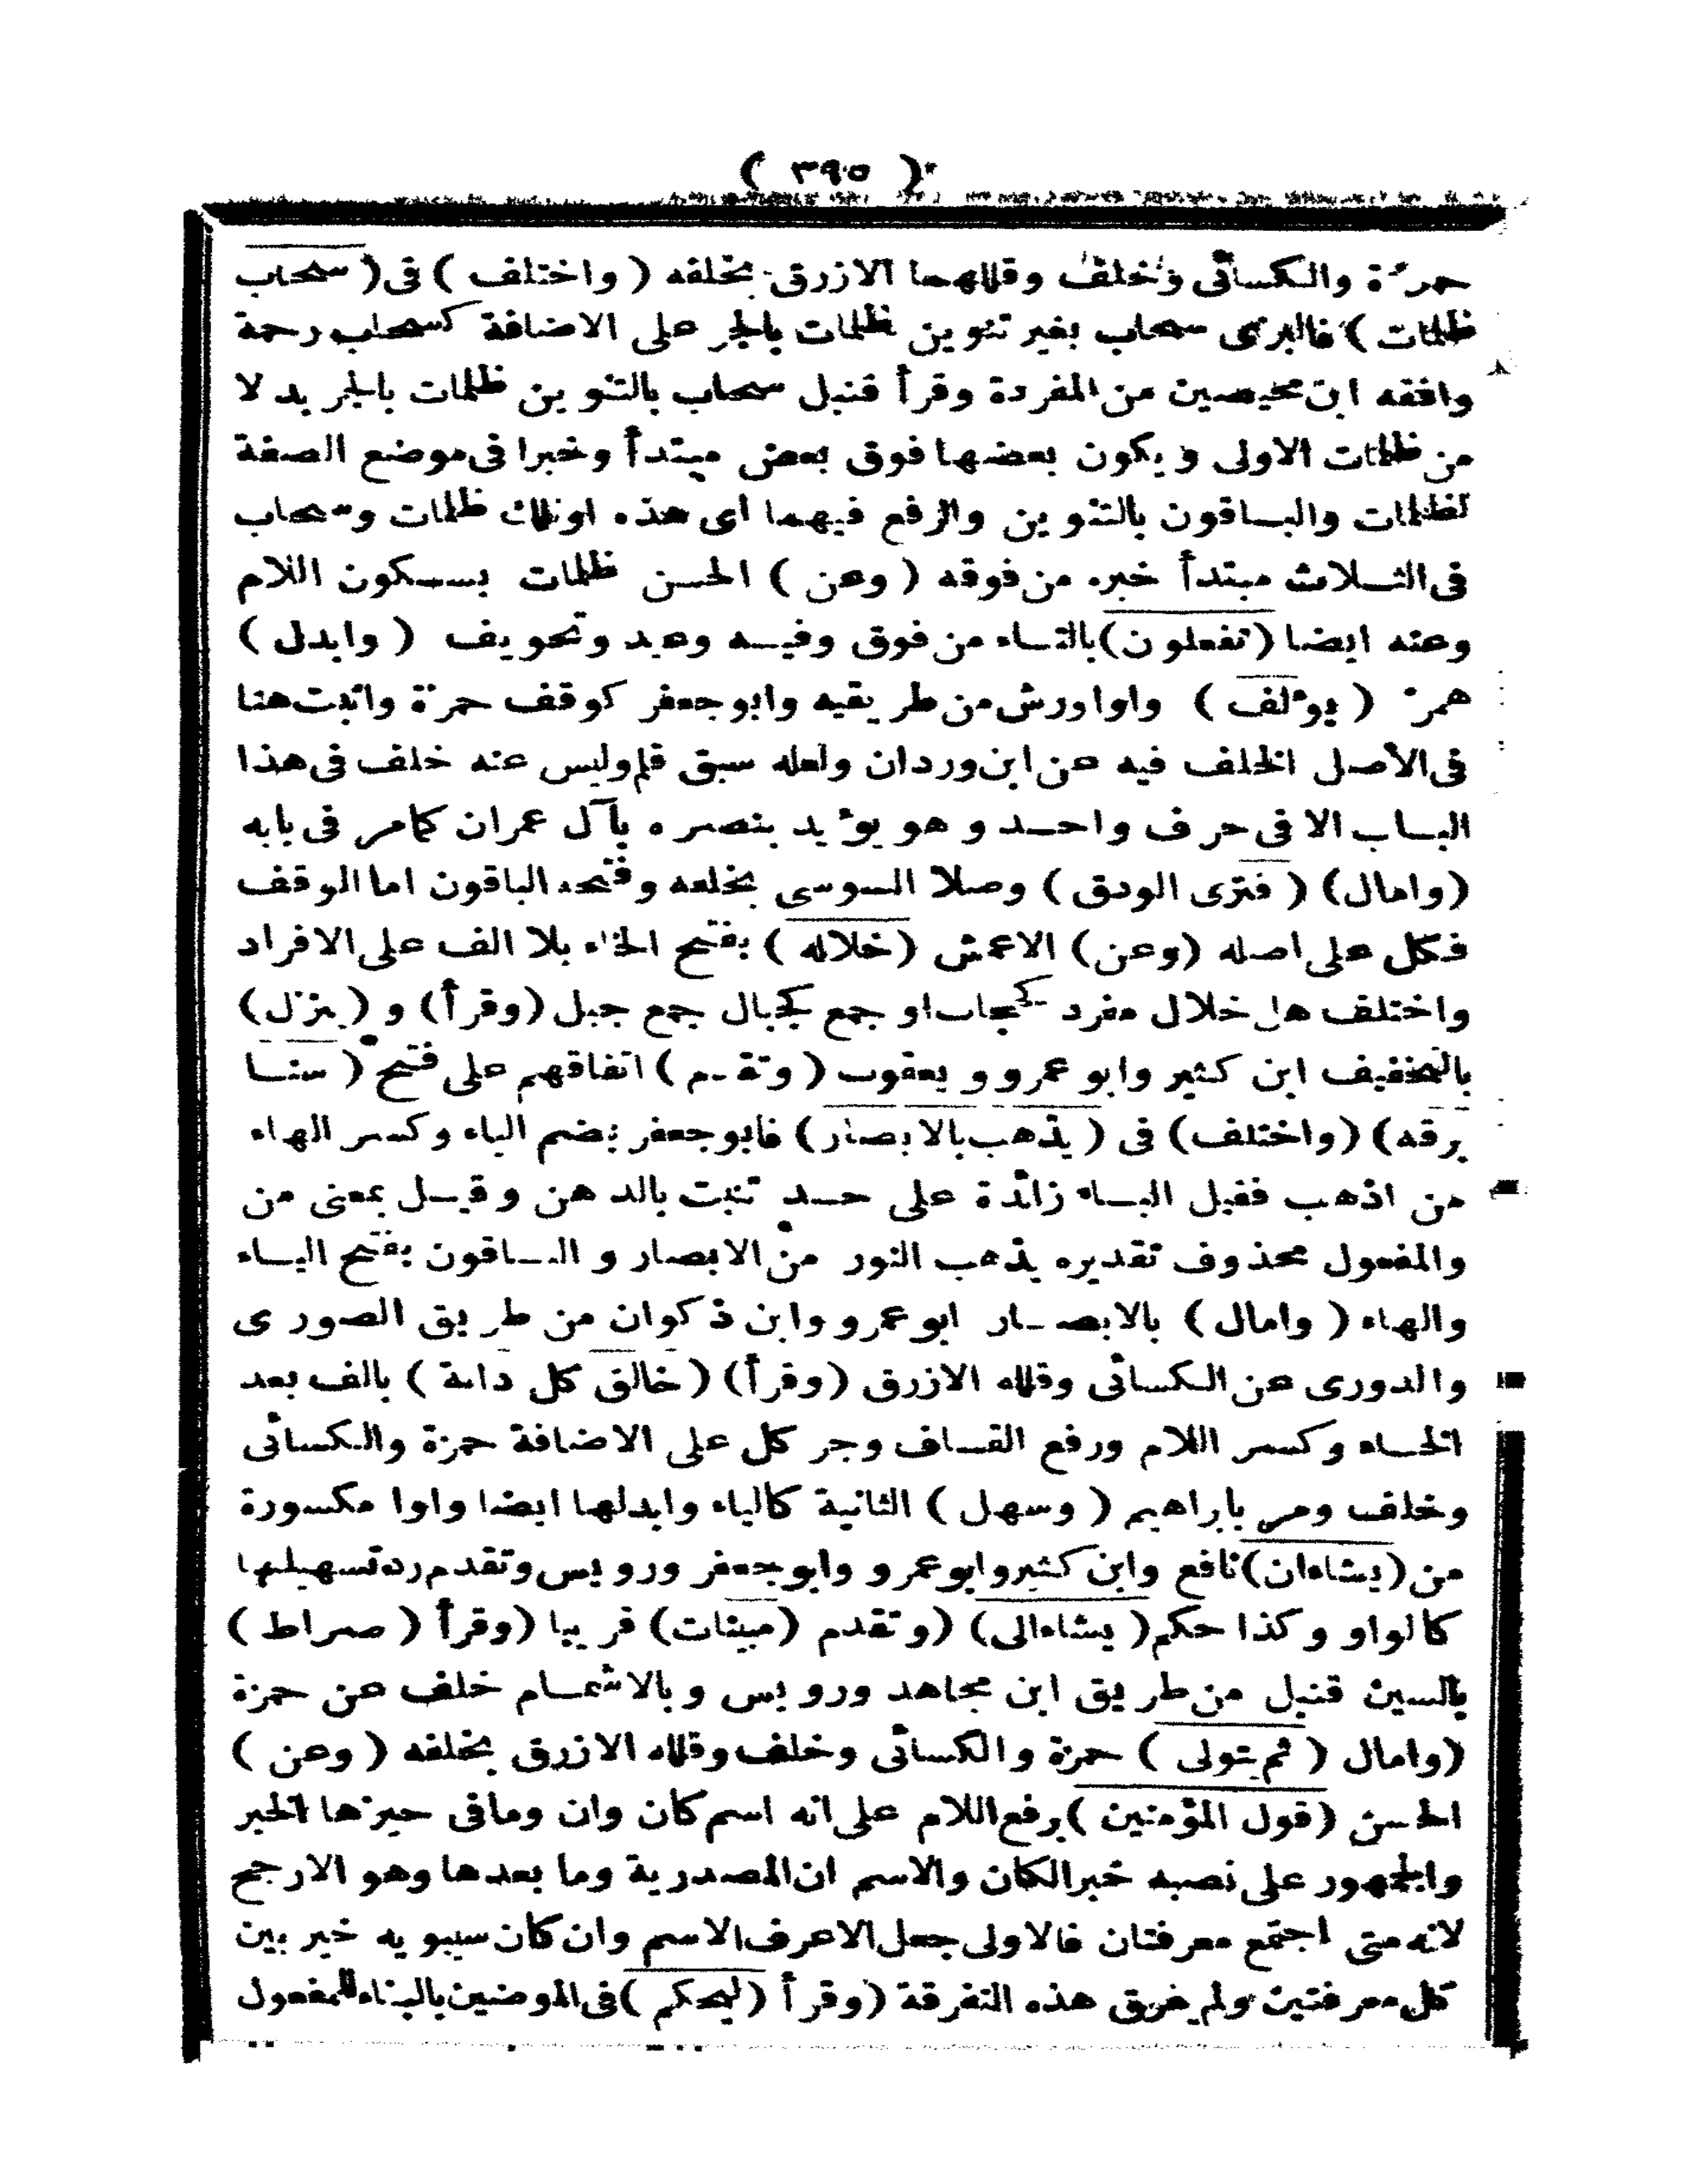 ( ٣٩٥ )
حمزة والكسائى وخلف وقللهما الازرق بخلفه ( واختلف ) فى ( سحاب
ظلمات ) فالبزى سحاب بغير تنوين ظلمات بالجر على الاضافة كسحاب رحمة
وافقه ابن محيصين من المفردة وقرأ قنبل سحاب بالتنوين ظلمات بالجر بدلا
من ظلمات الاولى ويكون بعضها فوق بعض مبتدأ وخبرا فى موضع الصفة
لظلمات والباقون بالتنوين والرفع فيهما اى هذه اوتلك ظلمات وسحاب
فى الثلاث مبتدأ خبره من فوقه ( وعن ) الحسن ظلمات بسكون اللام
وعنه ايضا ( تفعلون ) بالتاء من فوق وفيه وعيد وتخويف ( وابدل )
همز ( يؤلف ) واوا ورش من طريقيه وابو جعفر كوقف حمزة واثبت هنا
فى الأصل الخلف فيه عن ابن وردان ولعله سبق قلم وليس عنه خلف فى هذا
الباب الا فى حرف واحد وهو يؤيد بنصره بآل عمران كمامر فى بابه
(وامال) ( فترى الودق ) وصلا السوسى بخلعه وفتحه الباقون اما الوقف
فكل على اصله (وعن) الاعمش (خلاله ) بفتح الخاء بلا الف على الافراد
واختلف هل خلال مفرد كحجاب او جمع كجبال جمع جبل (وقرأ) و (ينزل)
بالتخفيف ابن كثير وابو عمرو و يعقوب ( وتقدم ) اتفاقهم على فتح ( سنا
برقه) (واختلف) فى ( يذهب بالابصار) فابو جعفر بضم الياء وكسر الهاء
من اذهب فقيل الباء زائدة على حد تنبت بالدهن وقيل بمعنى من
والمفعول محذوف تقديره يذهب النور من الابصار والباقون بفتح الياء
والهاء ( وامال ) بالابصار ابو عمرو وابن ذكوان من طريق الصورى
والدورى عن الكسائى وقلله الازرق (وقرأ) ( خالق كل دابة ) بالف بعد
الخاء وكسر اللام ورفع القاف وجر كل على الاضافة حمزة والكسائى
وخلف ومر بابراهيم ( وسهل ) الثانية كالياء وابدلها ايضا واوا مكسورة
من ( يشاءان) نافع وابن كثير وابو عمرو وابو جعفر ورويس وتقدم رد تسهيلها
كالواو وكذا حكم ( يشاءالى) (وتقدم (مبينات) قريبا (وقرأ ( صراط )
بالسين قنبل من طريق ابن مجاهد ورويس وبالاشمام خلف عن حمزة
(وامال ( ثم يتولى ) حمزة والكسائى وخلف وقلله الازرق بخلفه ( وعن )
الحسن ( قول المؤمنين ) برفع اللام على انه اسم كان وان ومافى حيزها الخبر
والجمهور على نصبه خبرا لكان والاسم ان المصدرية وما بعدها وهو الارجح
لانه متى اجتمع معرفتان فالاولى جعل الاعرف الاسم وان كان سيبويه خير بين
كل معرفتين ولم يفرق هذه التفرقة (وقرأ ( ليحكم ) فى الموضعين بالبناء للمفعول